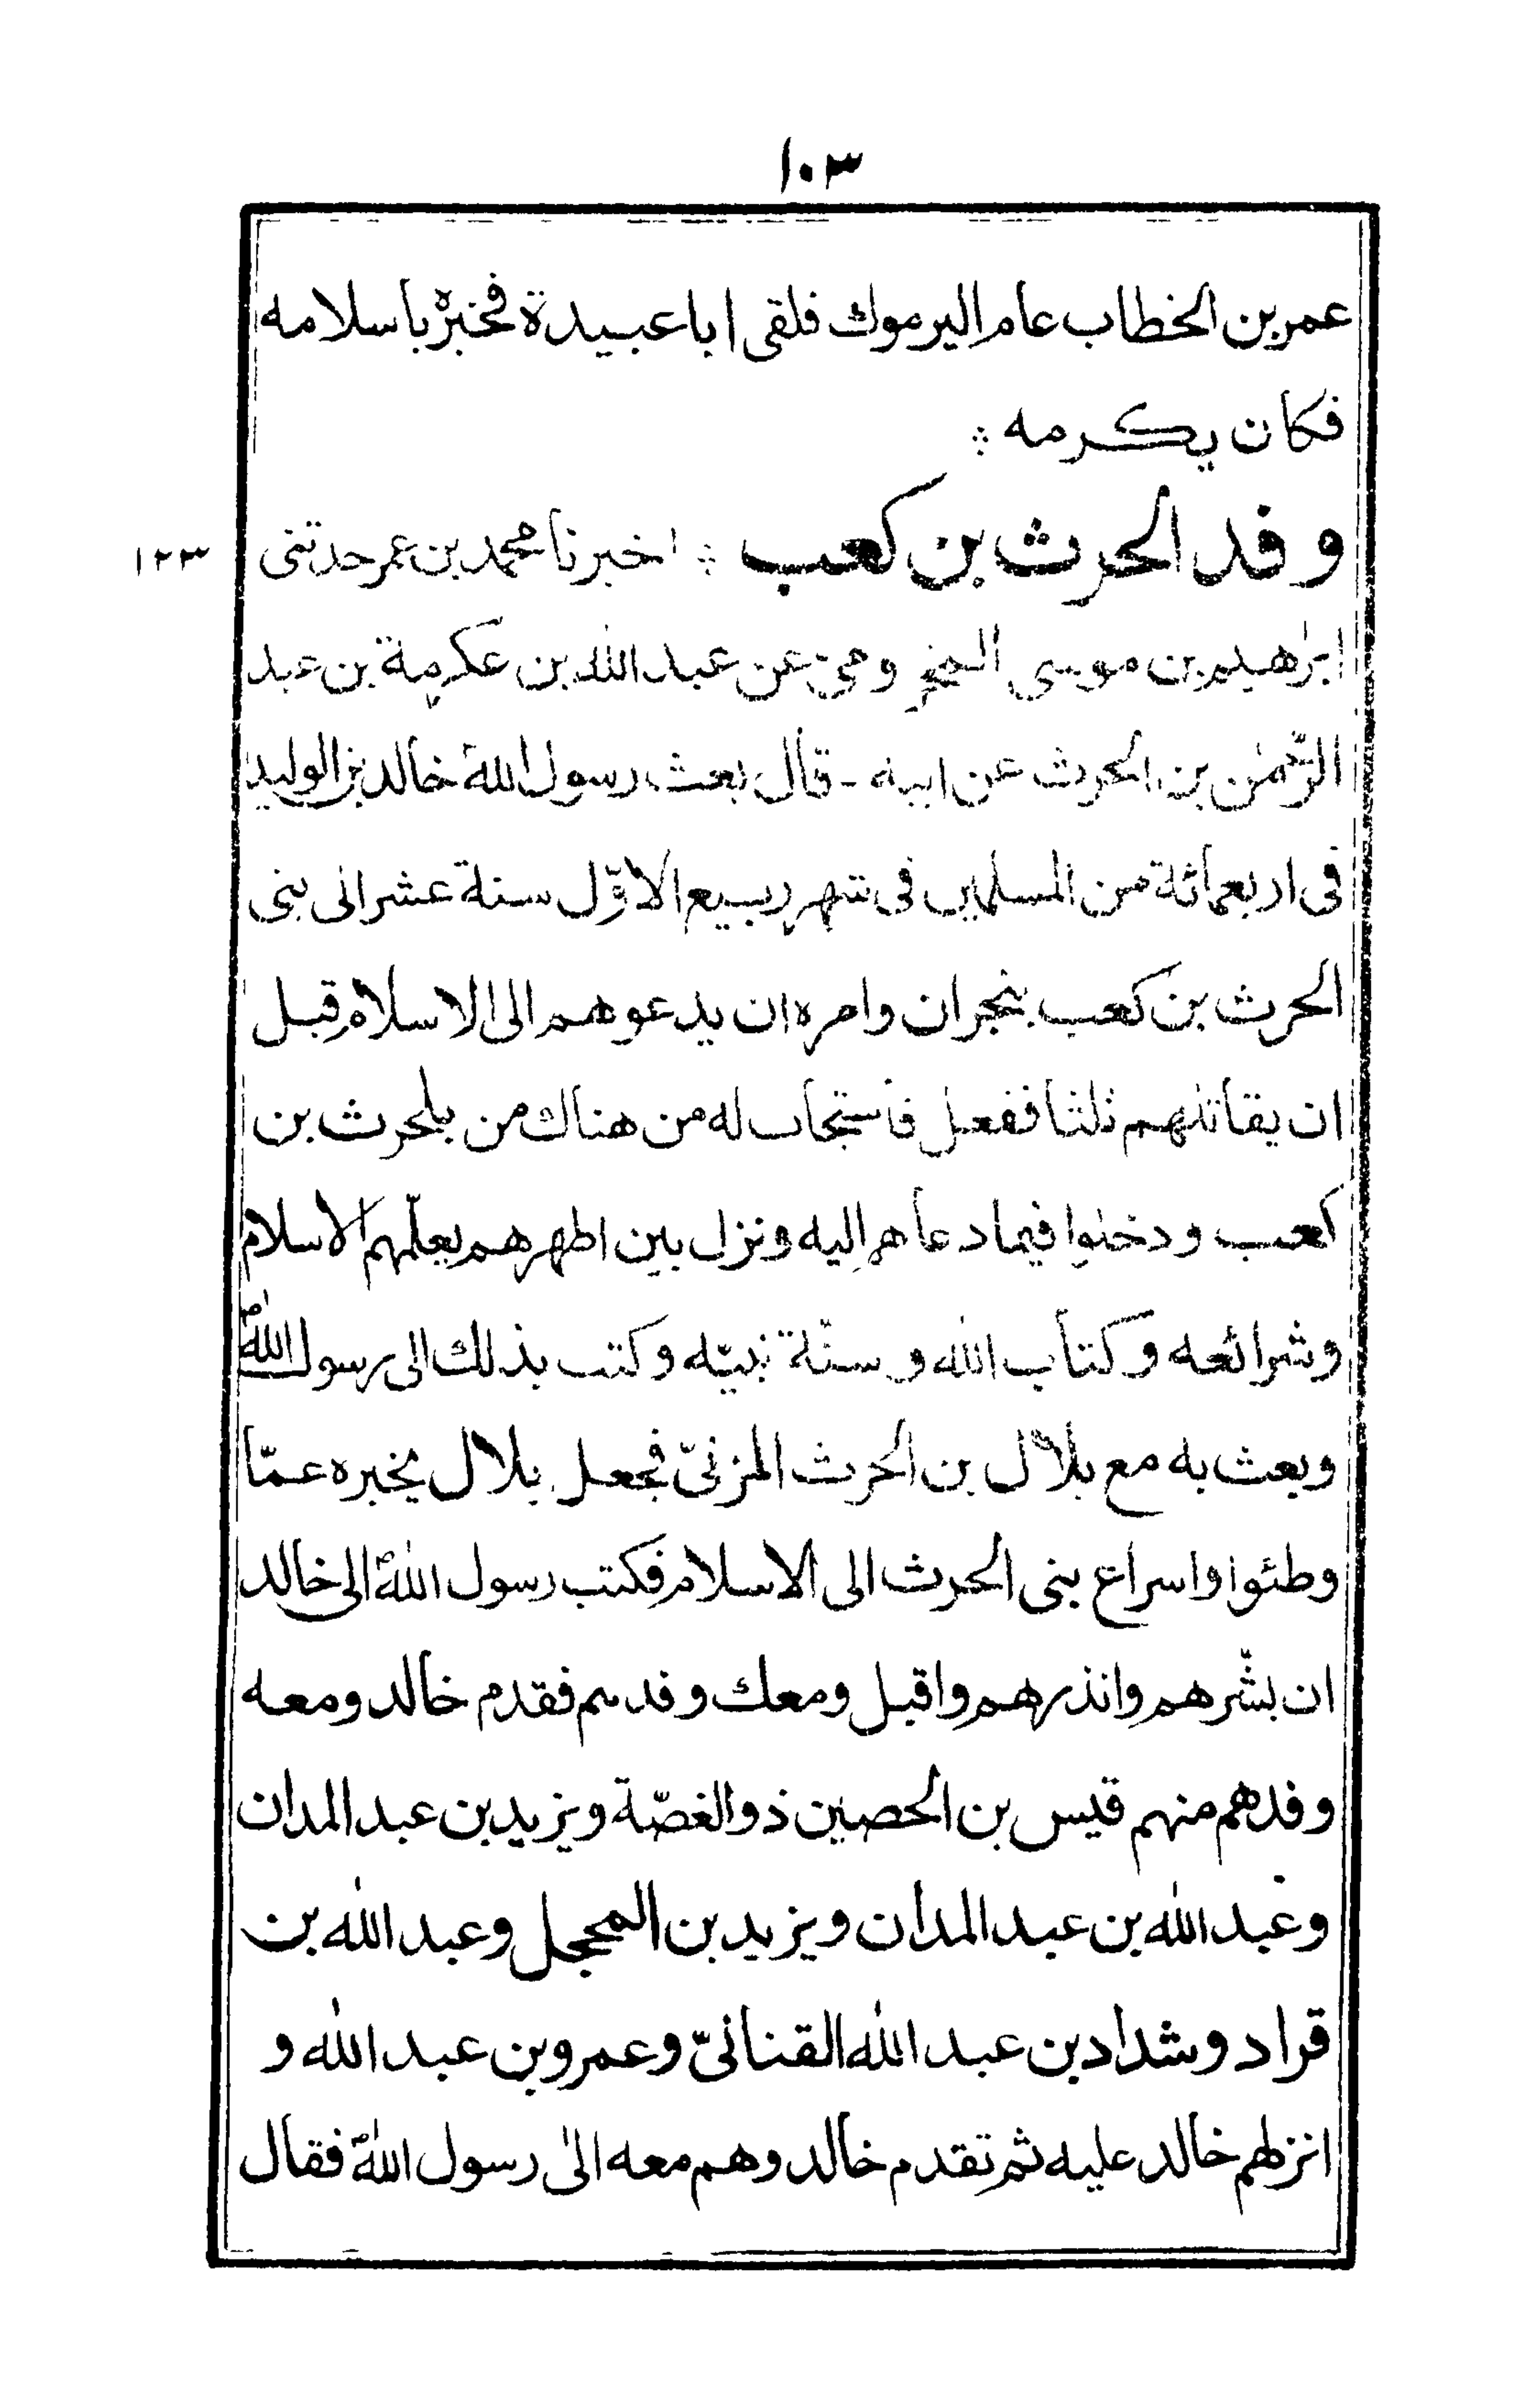 ١٠٣
عمر بن الخطاب عام اليرموك فلقى ابا عبيدة فخبّره باسلامه
فكان يكرمه ؞
وفد الحرث بن كعب ؞ اخبرنا محمد بن عمر حدثنى
١٢٣
ابرٰهيم بن موسى المخزومىّ عن عبد الله بن عكرمة بن عبد
الرّحمٰن بن الحرث عن ابيه - قال بعث رسول اللهؐ خالد بن الوليد
فى اربعمائة من المسلمين فى شهر ربيع الاوّل سنة عشر الى بنى
الحرث بن كعب بنجران وامره ان يدعوهم الى الاسلام قبل
ان يقاتلهم ثلثا ففعل فاستجاب له من هناك من بلحرث بن
كعب ودخلوا فيما دعاهم اليه ونزل بين اظهرهم يعلّمهم الاسلام
وشرائعه وكتاب الله وسنّة نبيّه وكتب بذلك الى رسول اللهؐ
وبعث به مع بلال بن الحرث المزنىّ فجعل بلال يخبره عمّا
وطئوا واسراع بنى الحرث الى الاسلام فكتب رسول اللهؐ الى خالد
ان بشّرهم وانذرهم واقبل ومعك وفدهم فقدم خالد ومعه
وفدهم منهم قيس بن الحصين ذو الغصّة ويزيد بن عبد المدان
وعبد الله بن عبد المدان ويزيد بن المحجل وعبد الله بن
قراد وشداد بن عبد الله القنانىّ وعمرو بن عبد الله و
انزلهم خالد عليه ثم تقدم خالد وهم معه الىٰ رسول اللهؐ فقال